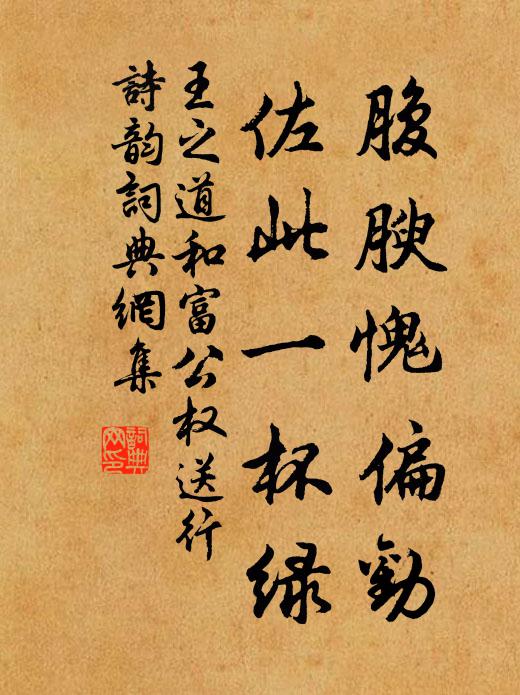 腹腴愧偏勸
佐此一杯绿
王之道和富公权送行
詩韵詞典網集
詞典网印